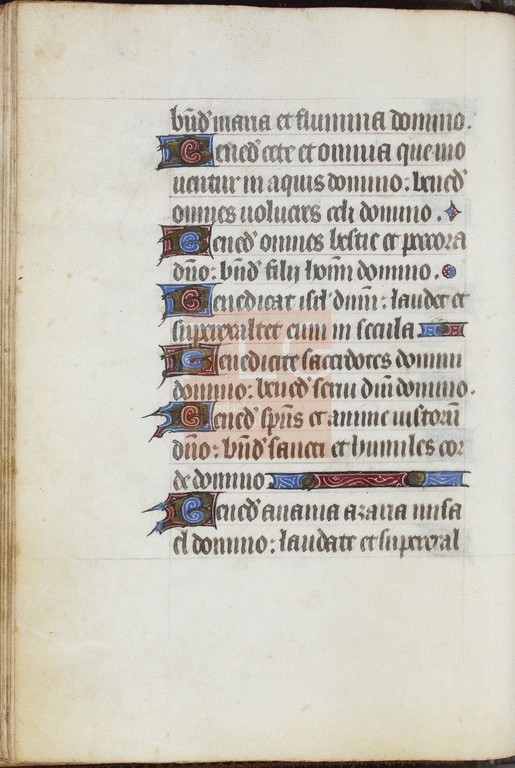 bn̄d maria et flumina domino.
Bened cete et omnia que mo
uentur in aquis domino: bened
omnes uolucres celi domino.
Bened omnes bestie et peccora
dn̄o: bn̄d filij hom̄ domino.
Benedicat isrl dnm̄: laudet et
superexaltet eum in secula
Benedicite sacerdotes domini
domino: bened serui dni domino.
Bened sp̄us et anime iustorū
dn̄o: bn̄d sancti et humiles cor
de domino
Bened anania azaria misa
el domino: laudate et superexal